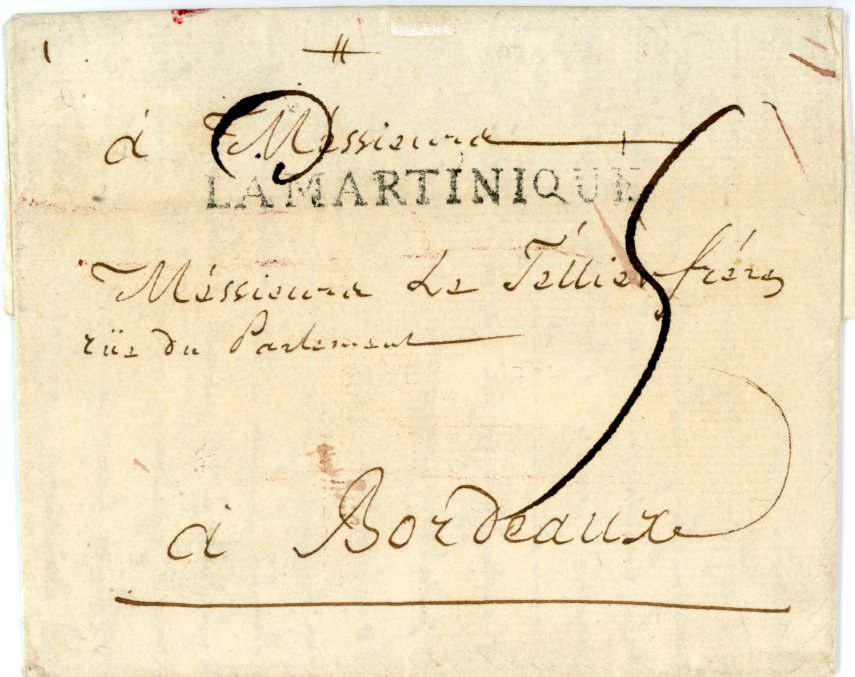 à Méssieurs
LA MARTINIQUE
5
Méssieurs Le Téllier fréres
rüe du Parlement
à Bordeaux